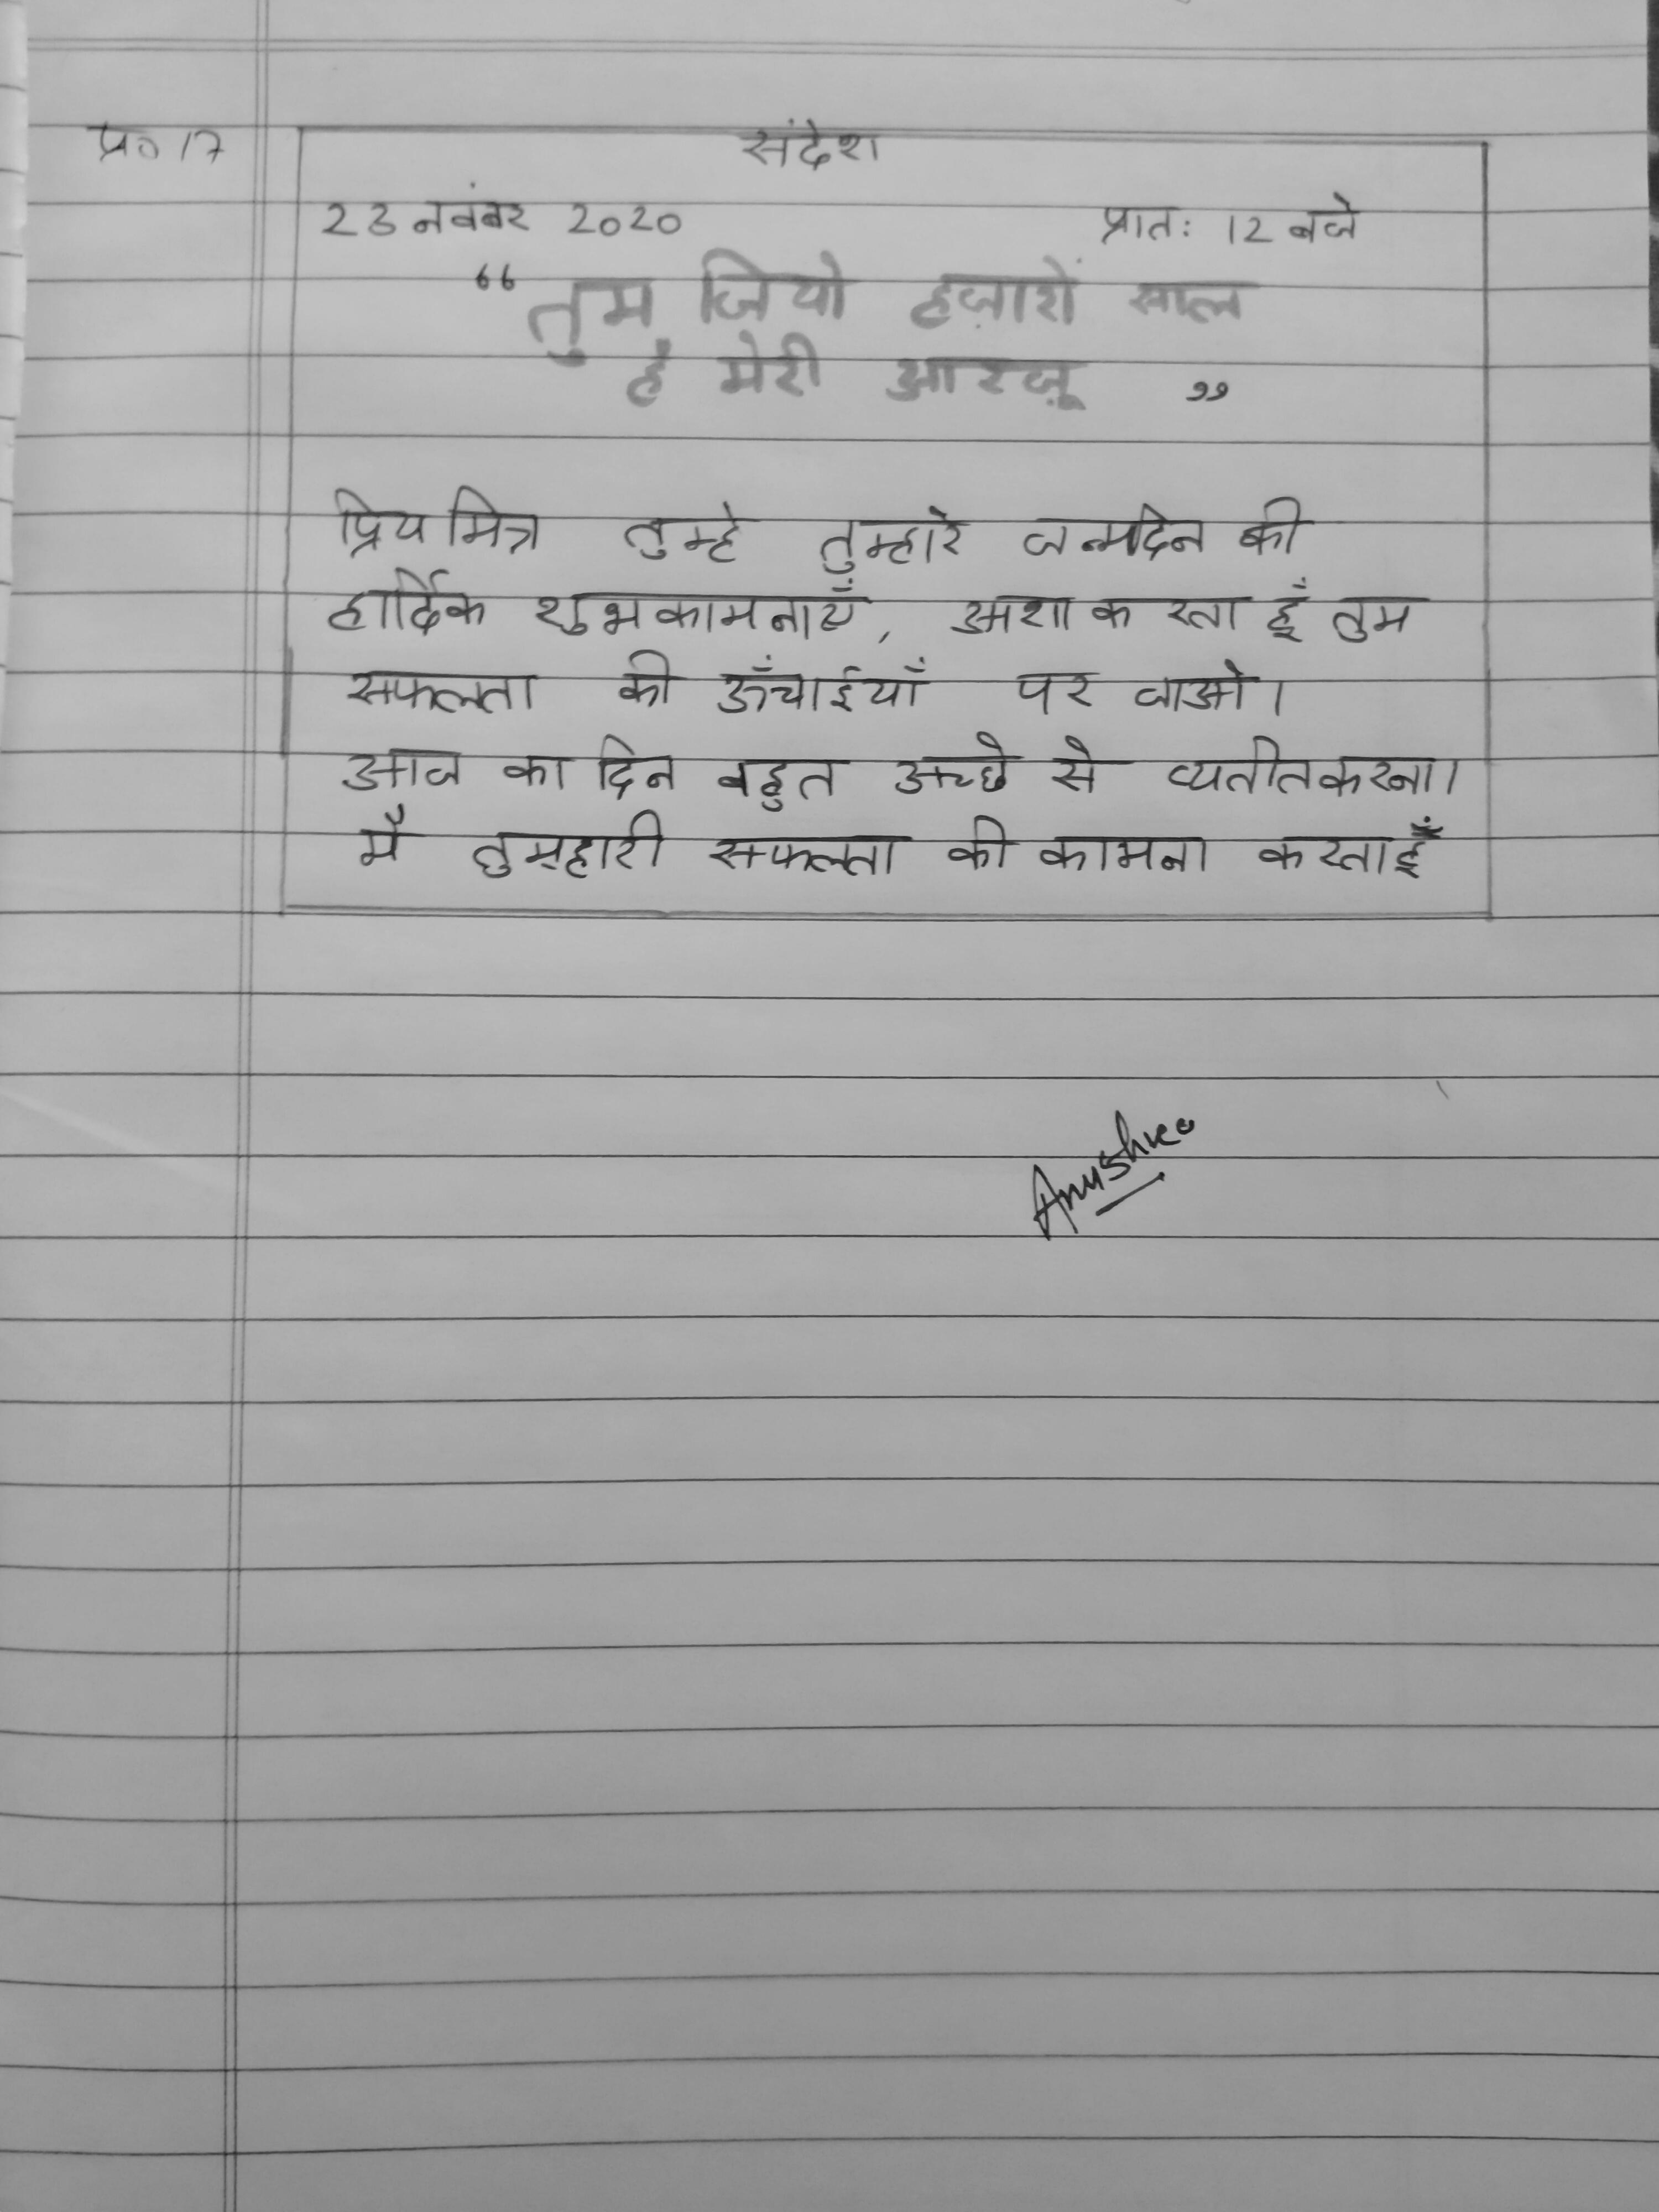 प्र० 17
संदेश
23 नवंबर 2020 प्रातः 12 बजे
“ तुम जियो हज़ारों साल
है मेरी आरज़ू ”
प्रिय मित्र तुम्हे तुम्हारे जन्मदिन की
हार्दिक शुभकामनाएँ, आशा करता हूँ तुम
सफलता की ऊँचाईयाँ पर जाओ।
आज का दिन बहुत अच्छे से व्यतीत करना।
मै तुम्हारी सफलता की कामना करता हूँ